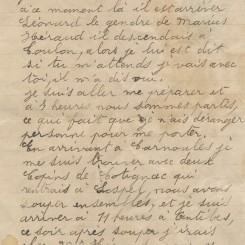 à ce moment là il est arriver
Léonard le gendre de Marius
Héraud il descendais à
Toulon, alors je lui est dit
si tu m'attends je vais avec
toi, il m'a dis oui.
je suis aller me préparer et
à 3 heures nous sommes partis,
ce qui fait que je n'ais déranger
personne pour me porter.
En arrivent à Carnoules je
me suis trouver avec deux
Copins de Cotignac qui
rentrais à Sospel, nous avons
souper ensembles, et je suis
arriver à 11 heures à Antibes,
ce soir après souper j'irais